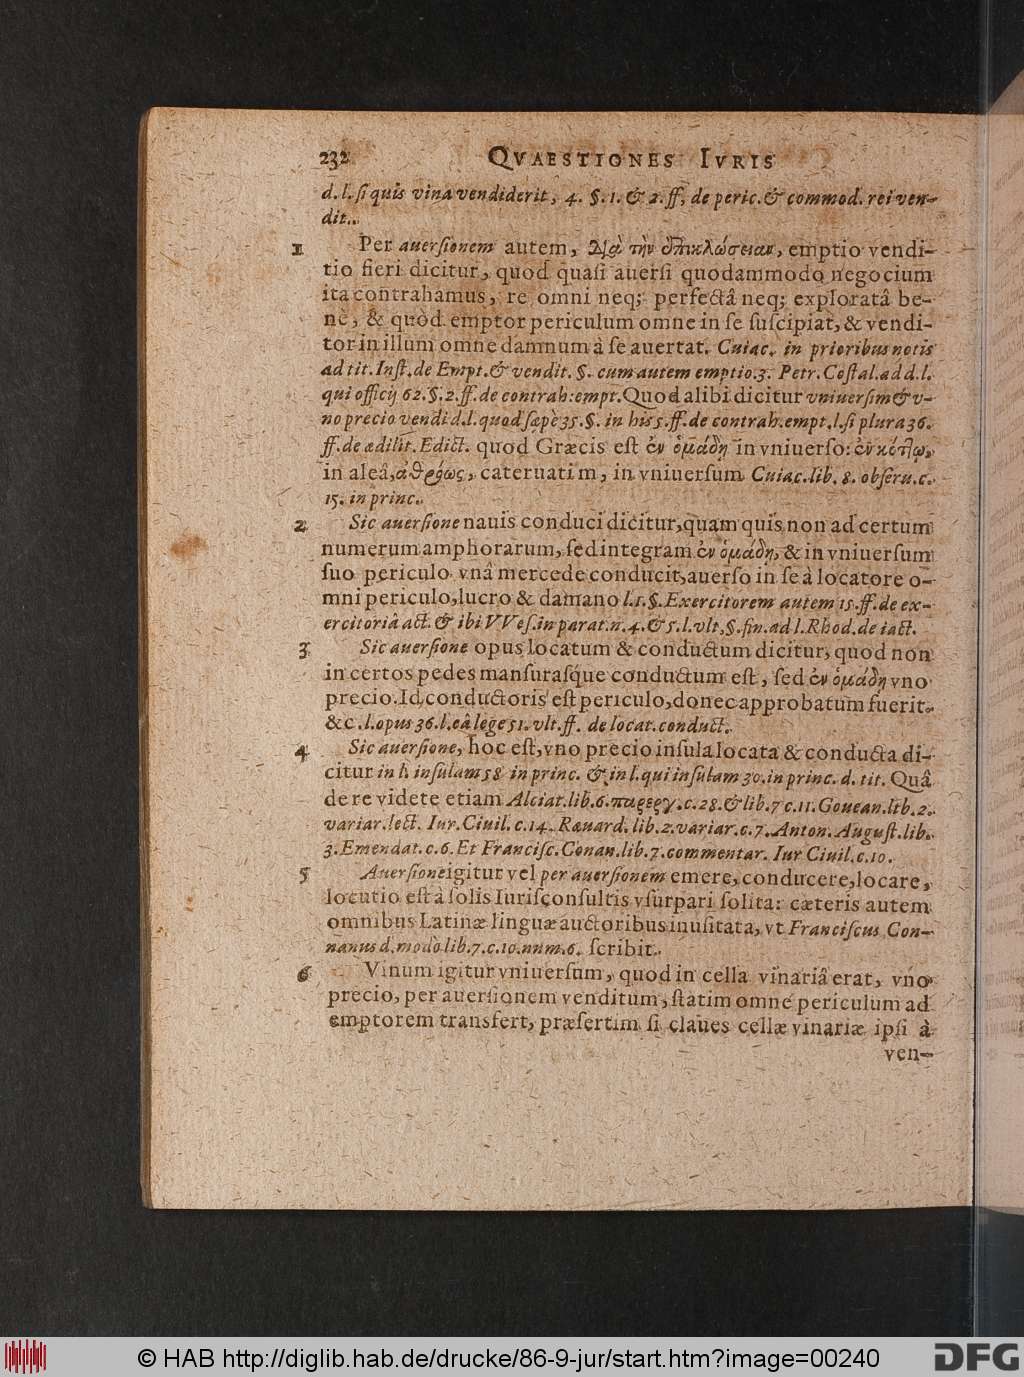 232 QVAESTIONES IVRIS
d. l. ſi quis vina vendiderit, 4. §. 1. & 2. ff. de peric. & commod. rei ven-
dit.
1 Per auerſionem autem, διὰ τὴν , emptio vendi-
tio fieri dicitur, quod quaſi auerſi quodammodo negocium
ita contrahamus, re omni neq; perfectâ neq; exploratâ be-
nè, & quòd emptor periculum omne in ſe ſuſcipiat, & vendi-
tor in illum omne damnum à ſe auertat. Cuiac. in prioribus notis
ad tit. Inſt. de Empt. & vendit. §. cum autem emptio 3. Petr. Coſtal. ad d. l.
qui officij 62. §. 2. ff. de contrah: empt. Quod alibi dicitur vniuerſim & v-
no precio vendi d. l. quod ſæpè 35. §. in his 5. ff. de contrah. empt. l. ſi plura 36.
ff. de ædilit. Edict. quod Græcis eſt ἐν ὁμάδῃ in vniuerſo: ἐν κότ῀ῳ,
in aleâ, ἀθρόως, cateruatim, in vniuerſum Cuiac. lib. 8. obſeru. c.
15. in princ.
2 Sic auerſione nauis conduci dicitur, quam quis non ad certum
numerum amphorarum, ſed integram ἐν ὁμάδῃ, & in vniuerſum
ſuo periculo vnâ mercede conducit, auerſo in ſe à locatore o-
mni periculo, lucro & damano l. 1. §. Exercitorem autem 15. ff. de ex-
ercitoriâ act. & ibi VVeſ. in parat. n. 4. & 5. l. vlt, §. fin. ad l. Rhod. de iact.
3 Sic auerſione opus locatum & conductum dicitur, quod non
in certos pedes manſuraſq́ue conductum eſt, ſed ἐν ὁμάδῃ vno
precio. Id conductoris eſt periculo, donec approbatum fuerit.
&c. l. opus 36. l. eâ lege 51. vlt. ff. de locat. conduct.
4 Sic auerſione, hoc eſt, vno precio inſula locata & conducta di-
citur in h inſulam 58 in princ. & in l. qui inſulam 30. in princ. d. tit. Quâ
de re videte etiam Alciat. lib. 6. παρεργ. c. 28. & lib. 7 c. 11. Gouean. lib. 2.
variar. lect. Iur. Ciuil. c. 14. Ræuard. lib. 2. variar. c. 7. Anton. Auguſt. lib.
3. Emendat. c. 6. Et Franciſc. Conan. lib. 7. commentar. Iur Ciuil. c. 10.
5 Auerſione igitur vel per auerſionem emere, conducere, locare,
locutio eſt à ſolis Iuriſconſultis vſurpari ſolita: cæteris autem
omnibus Latinæ linguæ auctoribus inuſitata, vt Franciſcus Con-
nanus d. modò lib. 7. c. 10. num. 6. ſcribit.
6 Vinum igitur vniuerſum, quod in cella vinariâ erat, vno
precio, per auerſionem venditum, ſtatim omne periculum ad
emptorem transfert, præſertim ſi claues cellæ vinariæ ipſi à
ven-
© HAB http://diglib.hab.de/drucke/86-9-jur/start.htm?image=00240
DFG